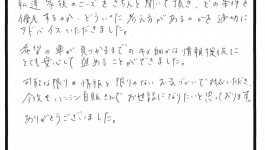 私達家族のニーズをきちんと聞いて頂き、どの条件を
優先するのか、どういった考え方があるのかを適切に
アドバイスいただきました。
希望の車が見つかるまでのキメ細かな情報提供に
とても安心して進めることができました。
可能な限りの情報と限りのない
今後も お世話になりたいと思っております。
ありがとうございました。